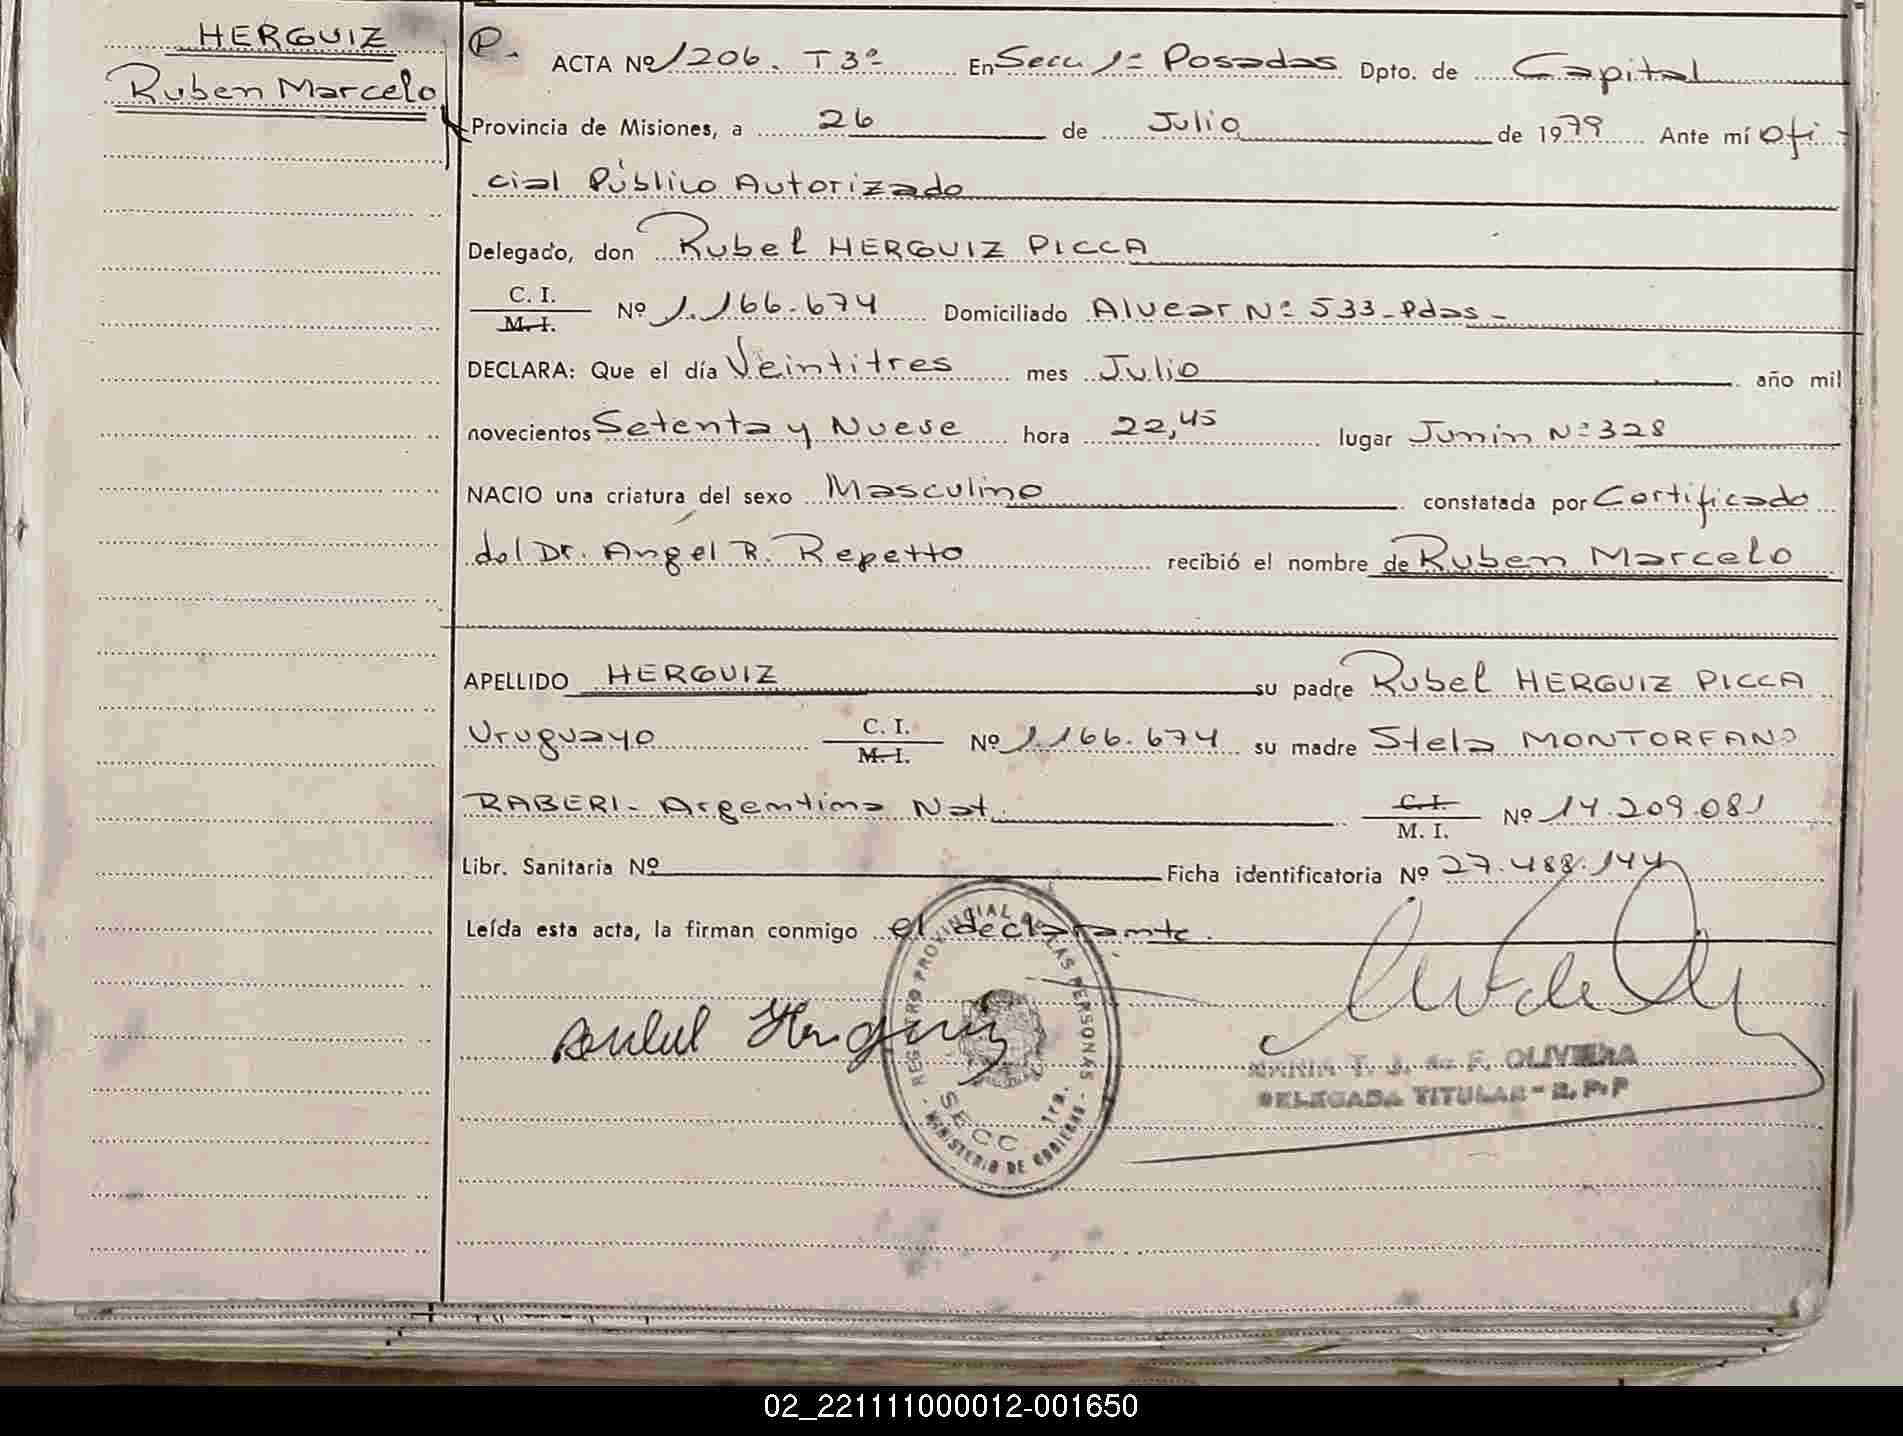 HERGUIZ
Ruben Marcelo
P. ACTA Nº 1206. T 3º En Secc 1ª Posadas Dpto. de Capital
Provincia de Misiones, a 26 de Julio de 1979 Ante mí Ofi-
cial Público Autorizado
Delegado, don Rubel HERGUIZ PICCA
C. I. M. I. Nº 1.166.674 Domiciliado Alvear Nº 533-Pdas-
DECLARA: Que el día Veintitres mes Julio año mil
novecientos Setenta y Nueve hora 22,45 lugar Junin Nº 328
NACIO una criatura del sexo Masculino constatada por Certificado
del Dr. Angel R. Repetto recibió el nombre de Ruben Marcelo
APELLIDO HERGUIZ su padre Rubel HERGUIZ PICCA
Uruguayo C. I. M. I. Nº 1.166.674 su madre Stela MONTORFANO
RABERI- Argentina Nat. C. I. M. I. Nº 14.209.081
Libr. Sanitaria Nº Ficha identificatoria Nº 27.488.144
Leída esta acta, la firman conmigo el declarante.
REGISTRO PROVINCIAL DE LAS PERSONAS
SECC. 1ra.
- MINISTERIO DE GOBIERNO -
Rubel Herguiz
MARIA T. J. de F. OLIVEIRA
DELEGADA TITULAR - R. P. P
02_221111000012-001650